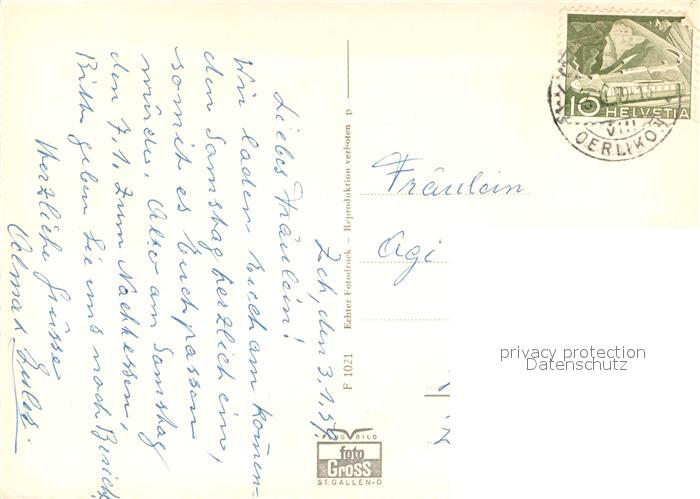 Zch, den 3.1.59.
Liebes Fräulein!
Wir laden Euch am kommen-
den Samstag herzlich ein,
somit es Euch passen
würde. Also am Samstag
den 7.1. zum Nachtessen,
Bitte geben Sie uns noch Bericht
Herzliche Grüsse
F 1021 Echter Fotodruck – Reproduktion verboten p
10 HELVETIA
VIII
OERLIKON
Fräulein
Agi
privacy protection
Datenschutz
FLUGBILD
foto
Gross
ST. GALLEN-O